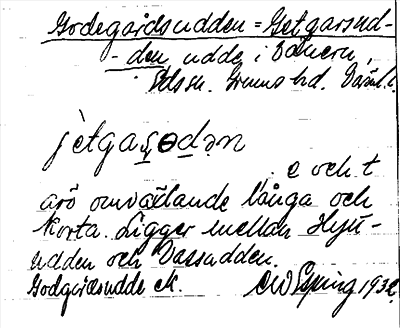 Godegårdsudden = Getgarsud-
- den, udde i Vänern,
Eds sn. Grums hd. Värml. l.
jètgaṣɵdən
e och t
äro omväxlande långa och
korta. Ligger mellan Hyn-
udden och Vassudden.
Godgärdsudde ek. CW Spring 1932.